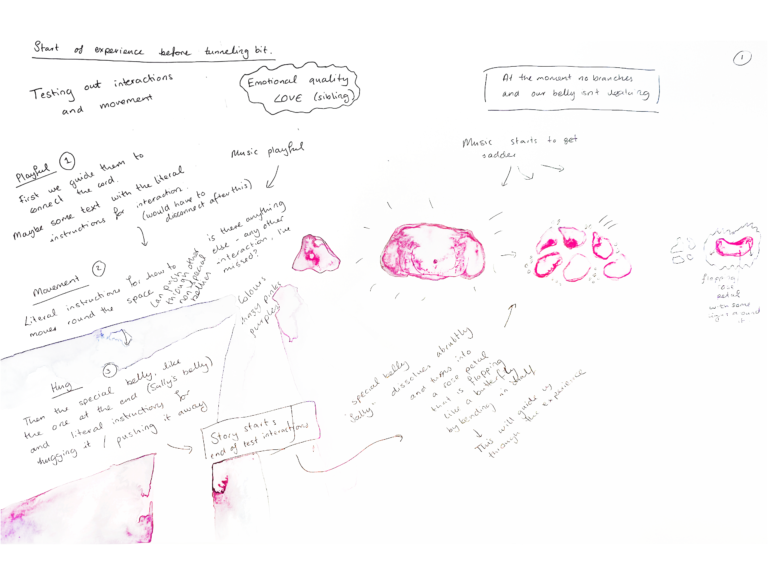 Start of experience before tunneling bit.
1
Testing out interactions
and movement
Emotional quality
LOVE (sibling)
At the moment no branches
and our belly isn't
Music playful
Music starts to get
sadder
Playful 1
First we guide them to
connect the cord.
Maybe some text with the literal
instructions for interaction.
(would have to
disconnect after this)
Movement 2
Literal instructions for how to
move round the space
can push other
things, other
non special
bellies
is there anything
else, any other
interaction I've
missed?
Colours
pinks
purples
Hug 3
Then the special belly, like
the one at the end (Sully's belly)
and literal instructions for
hugging it / pushing it away
Story starts
end of test interactions
special belly
dissolves abruptly
and turns into
a rose petal
that is flapping
like a butterfly
by bending on itself
This will guide us
through the experience
flapping
our
petal
with some
signs around
it